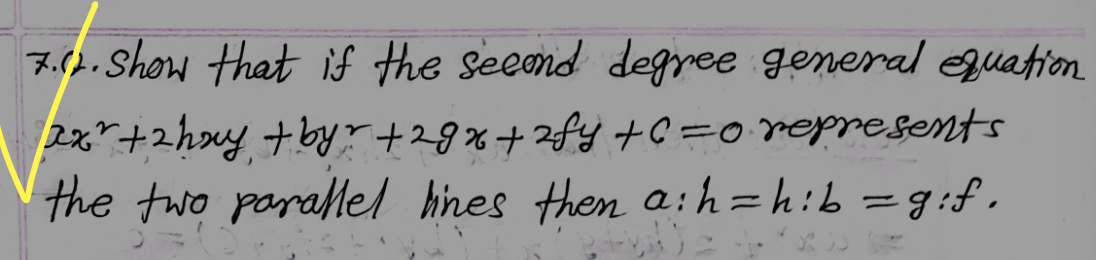 7.Q. Show that if the second degree general equation
ax²+2hxy+by²+2gx+2fy+c=0 represents
the two parallel lines then a:h=h:b=g:f.